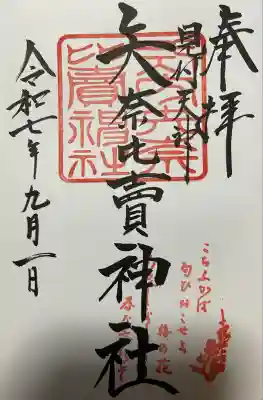 奉拝
見付天神
矢奈比賣神社
令和七年九月一日
こちふかば
匂ひおこせよ
梅の花